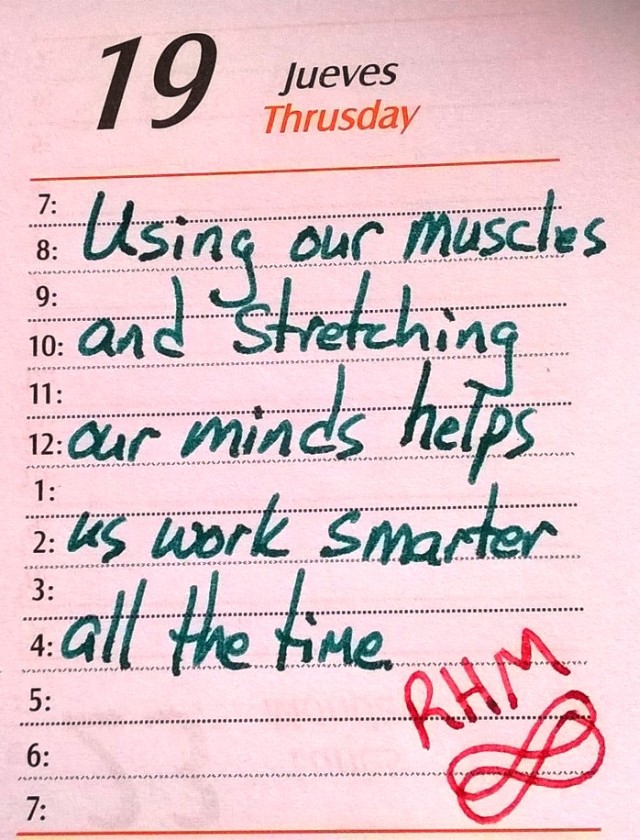 19 Jueves
Thrusday
7:
8: Using our muscles
9:
10: and stretching
11:
12: our minds helps
1:
2: us work smarter
3:
4: all the time.
5:
RHM
6:
7: